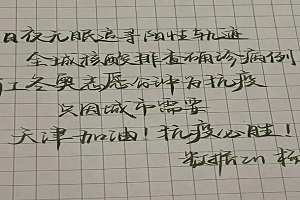 日夜无眠追寻阳性轨迹
全城核酸排查确诊病例
冬奥志愿 为抗疫
只因城市需要
天津加油！抗疫必胜！
数据